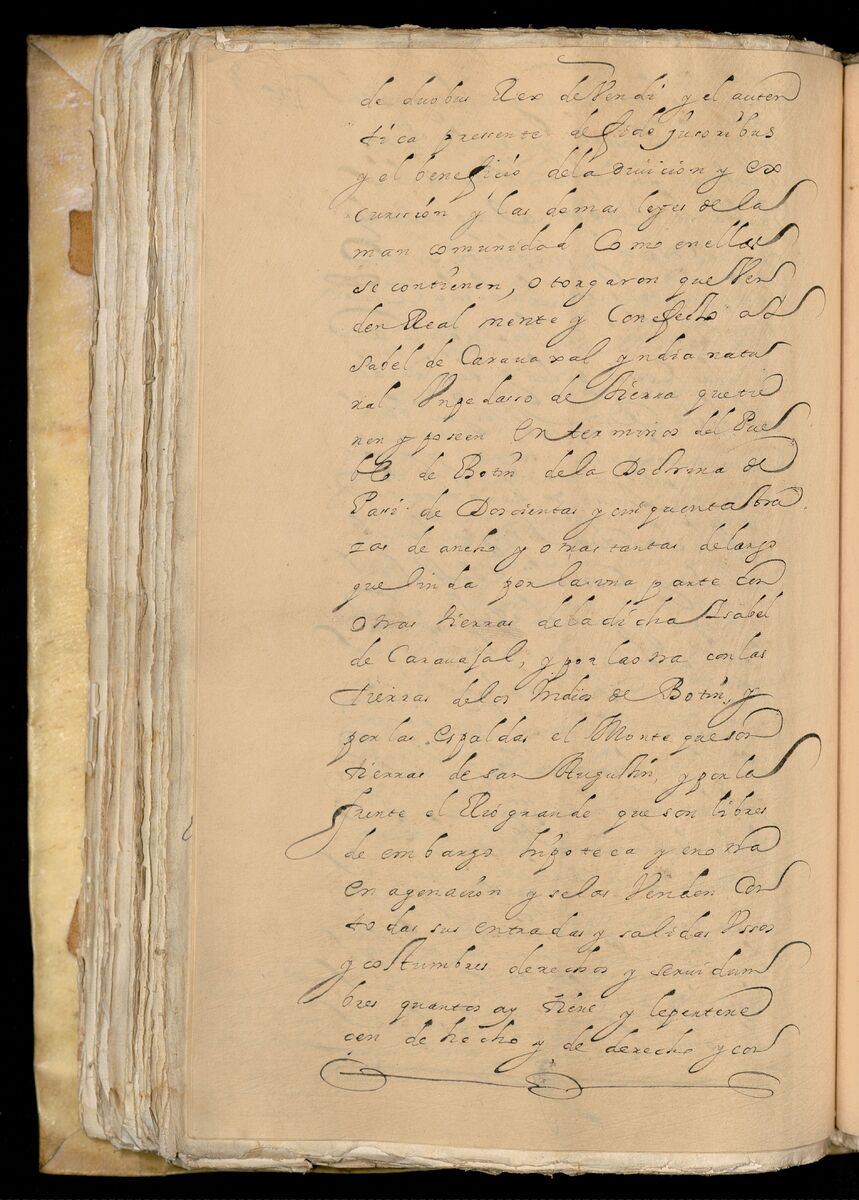 de duobus Rex deVendi y el auten
tica pressente de fide jusoribus
y el beneficio dela Diuicion y ex
cursion y las demas leyes de la
man comunidad Como enellas
se contienen, otorgaron que Ven
den Real mente y Con efecto a Y
sabel de Carauaxal yndia natu
ral Vn pedasso de tierra que tie
nen y poseen en terminos del Pue
blo de Botin de la Doctrina de
Pari. de Dorcientas y cinquenta bra
zas de ancho y otras tantas delargo
que linda por la una parte con
otras tierras de la dicha Isabel
de Carauajal, y por la otra con las
tierras delos Indios de Botin, y
por las espaldas el Monte que son
tierras de san Augustin, y por la
frente el Rio grande que son libres
de embargo hipoteca y en otra
en agenacion y se las Venden Con
todas sus entradas y salidas Vssos
y costumbres derechos y seruidum
bres quantos ay tiene y le pertene
cen de hecho y de derecho y con